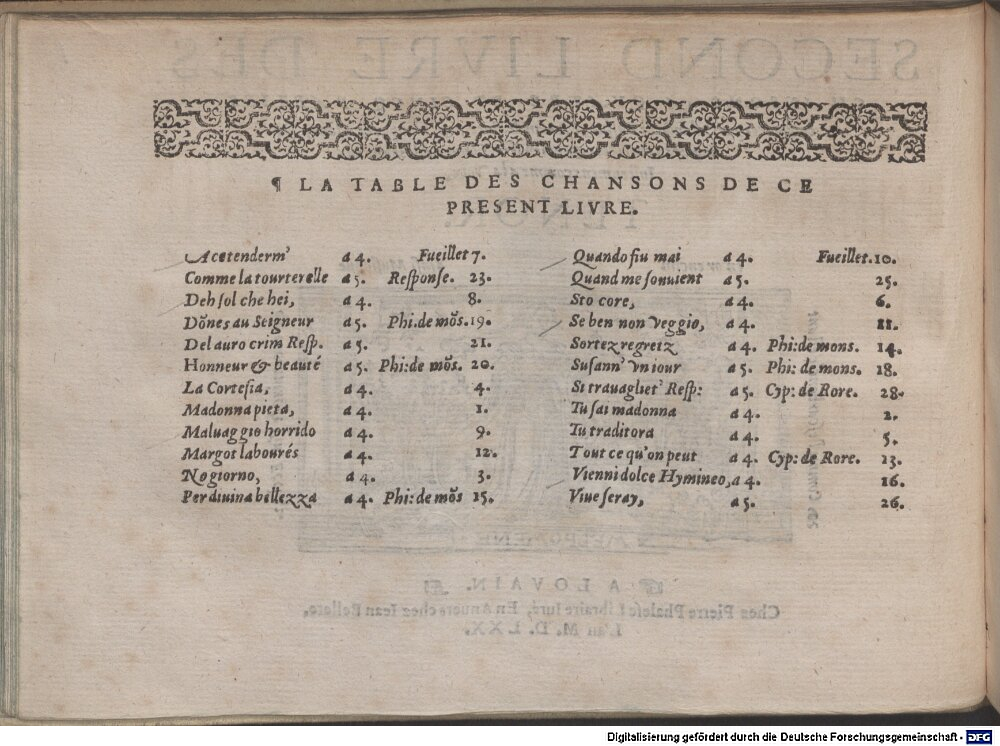 ¶ LA TABLE DES CHANSONS DE CE
PRESENT LIVRE.
Acotenderm' a 4. Fueillet 7.
Comme la tourterelle a 5. Response. 23.
Deh sol che hei, a 4. 8.
Dōnes au Seigneur a 5. Phi. de mōs. 19.
Del auro crim Resp. a 5. 21.
Honneur & beauté a 5. Phi: de mōs. 20.
La Cortesia, a 4. 4.
Madonna pieta, a 4. 1.
Maluaggio horrido a 4. 9.
Margot labourés a 4. 12.
No giorno, a 4. 3.
Per diuina bellezza a 4. Phi: de mōs 15.
Quando fiu mai a 4. Fueillet. 10.
Quand me souuient a 5. 25.
Sto core, a 4. 6.
Se ben non veggio, a 4. 11.
Sortez regretz a 4. Phi: de mons. 14.
Susann' vn iour a 5. Phi: de mons. 18.
Si trauagliet' Resp: a 5. Cyp: de Rore. 28.
Tu sai madonna a 4. 2.
Tu traditora a 4. 5.
Tout ce qu'on peut a 4. Cyp: de Rore. 13.
Vienni dolce Hymineo, a 4. 16.
Viue seray, a 5. 26.
Digitalisierung gefördert durch die Deutsche Forschungsgemeinschaft - DFG